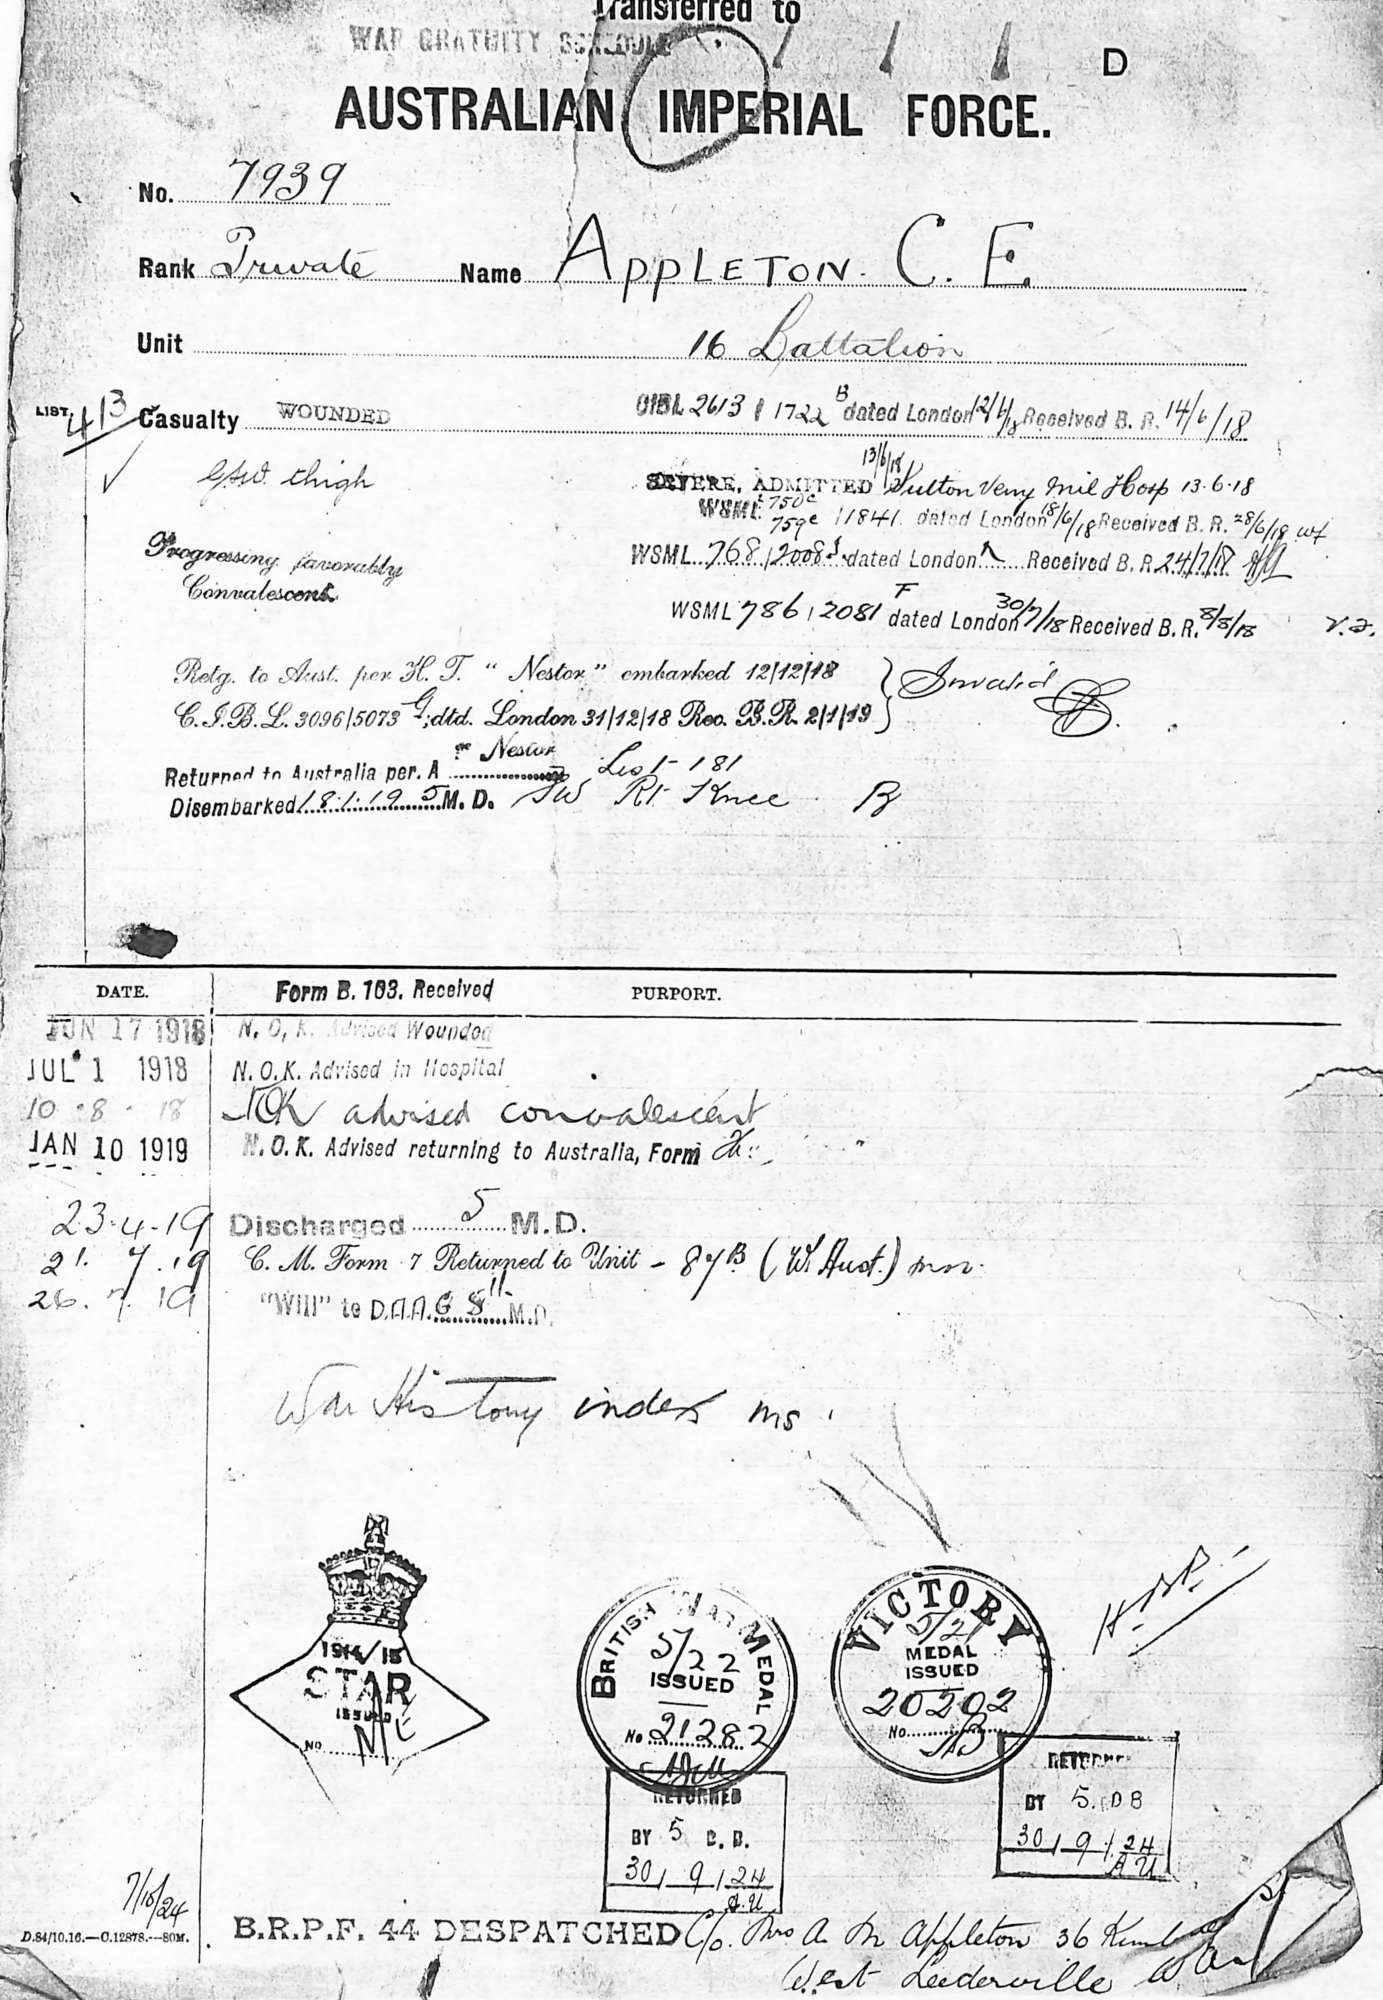 Transferred to
WAR GRATUITY SCHEDULE
D
AUSTRALIAN IMPERIAL FORCE.
No. 7939
Rank Private Name APPLETON. C. E.
Unit 16 Battalion
LIST 413 Casualty WOUNDED CIBL 2613 1722 B dated London 12/6/18 Received B. R. 14/6/18
G.S.W. thigh SEVERE, ADMITTED 13/6/18 Sutton Veny Mil Hosp 13.6.18
WSML 750c 759c 11841. dated London 18/6/18 Received B. R. 28/6/18
Progressing favorably WSML 768/2008 dated London Received B. R. 24/7/18
Convalescent WSML 786/2081 F dated London 30/7/18 Received B. R. 8/8/18
Retg. to Aust. per H. T. "Nestor" embarked 12/12/18 Invalid
C. I. B. L. 3096/5073 G; dtd. London 31/12/18 Rec. B. R. 2/1/19
Returned to Australia per. A Nestor List 181
Disembarked 18.1.19 5 M. D. SW Rt Knee
DATE. Form B. 103. Received PURPORT.
JUN 17 1918 N. O. K. Advised Wounded
JUL 1 1918 N.O.K. Advised in Hospital
10.8.18 NOK advised convalescent
JAN 10 1919 N. O. K. Advised returning to Australia, Form
23.4.19 Discharged 5 M.D.
21.7.19 C. M. Form 7 Returned to Unit - 87B (W Aust.)
26.7.19 "Will" to D.A.A.G 5 M.D.
War History index ms
1914/15
STAR
ISSUED
No NE
BRITISH WAR MEDAL
5/22
ISSUED
No 21282
VICTORY
5/21
MEDAL
ISSUED
20202
No.
RETURNED
BY 5 D. B.
30/9/24
A.U
RETURNED
BY 5. DB
30/9/24
A U
7/10/24
D.84/10.16.—C.12878.—80M.
B.R.P.F. 44 DESPATCHED C/o. Mrs A M Appleton 36
West Leederville